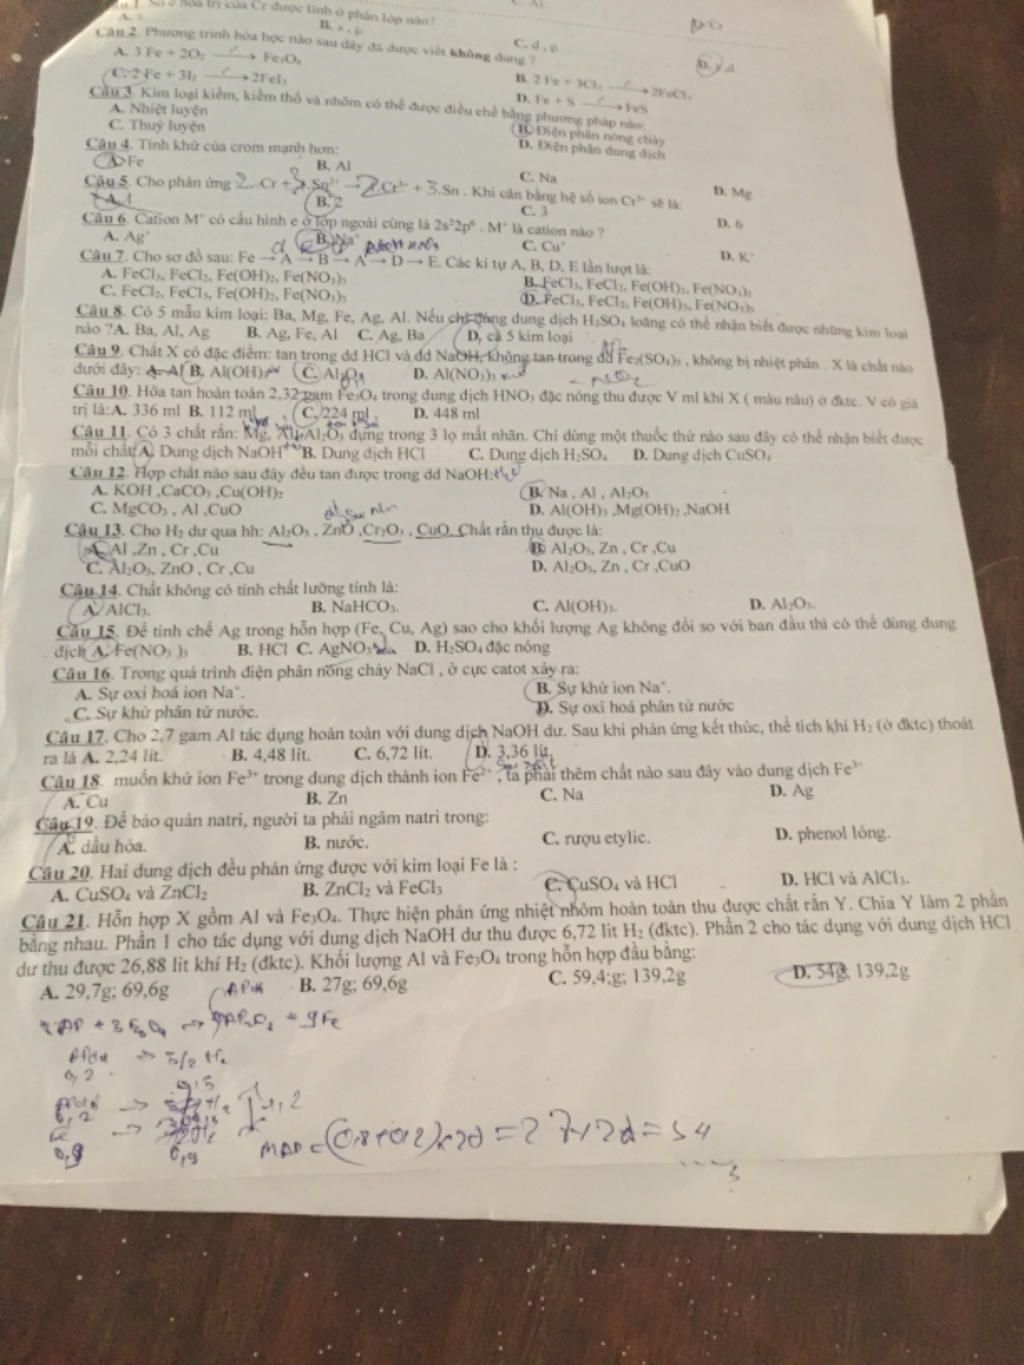 Số e hóa trị của Cr được tính ở phân lớp nào?
Câu 2. Phương trình hóa học nào sau đây đã được viết không đúng ?
A. 3 Fe + 2O₂ ⟶ Fe₃O₄
B. 2 Fe + 3Cl₂ ⟶ 2FeCl₃
C. 2 Fe + 3I₂ ⟶ 2FeI₃
D. Fe + S ⟶ FeS
Câu 3. Kim loại kiềm, kiềm thổ và nhôm có thể được điều chế bằng phương pháp nào:
A. Nhiệt luyện B. Điện phân nóng chảy
C. Thuỷ luyện D. Điện phân dung dịch
Câu 4. Tính khử của crom mạnh hơn:
A. Fe B. Al C. Na D. Mg
Câu 5. Cho phản ứng 2.Cr + 3.Sn²⁺ → 2.Cr³⁺ + 3.Sn . Khi cân bằng hệ số ion Cr³⁺ sẽ là:
A. 1 B. 2 C. 3 D. 6
Câu 6. Cation M⁺ có cấu hình e ở lớp ngoài cùng là 2s²2p⁶ . M⁺ là cation nào ?
A. Ag⁺ B. Na⁺ C. Cu⁺ D. K⁺
Câu 7. Cho sơ đồ sau: Fe → A → B → A → D → E. Các kí tự A, B, D, E lần lượt là:
A. FeCl₃, FeCl₂, Fe(OH)₂, Fe(NO₃)₃ B. FeCl₃, FeCl₂, Fe(OH)₂, Fe(NO₃)₂
C. FeCl₂, FeCl₃, Fe(OH)₂, Fe(NO₃)₃ D. FeCl₃, FeCl₂, Fe(OH)₃, Fe(NO₃)₃
Câu 8. Có 5 mẫu kim loại: Ba, Mg, Fe, Ag, Al. Nếu chỉ dùng dung dịch H₂SO₄ loãng có thể nhận biết được những kim loại
nào ?A. Ba, Al, Ag B. Ag, Fe, Al C. Ag, Ba D. cả 5 kim loại
Câu 9. Chất X có đặc điểm: tan trong dd HCl và dd NaOH, không tan trong dd Fe₂(SO₄)₃ , không bị nhiệt phân . X là chất nào
dưới đây: A. Al B. Al(OH)₃ C. Al₂O₃ D. Al(NO₃)₃
Câu 10. Hòa tan hoàn toàn 2,32 gam Fe₃O₄ trong dung dịch HNO₃ đặc nóng thu được V ml khí X ( màu nâu) ở đktc. V có giá
trị là:A. 336 ml B. 112 ml C. 224 ml D. 448 ml
Câu 11. Có 3 chất rắn: Mg, Al, Al₂O₃ đựng trong 3 lọ mất nhãn. Chỉ dùng một thuốc thử nào sau đây có thể nhận biết được
mỗi chất A. Dung dịch NaOH B. Dung dịch HCl C. Dung dịch H₂SO₄ D. Dung dịch CuSO₄
Câu 12. Hợp chất nào sau đây đều tan được trong dd NaOH:
A. KOH ,CaCO₃ ,Cu(OH)₂ B. Na , Al , Al₂O₃
C. MgCO₃ , Al ,CuO D. Al(OH)₃ ,Mg(OH)₂ ,NaOH
Câu 13. Cho H₂ dư qua hh: Al₂O₃ , ZnO ,Cr₂O₃ , CuO. Chất rắn thu được là:
A. Al ,Zn , Cr ,Cu B. Al₂O₃, Zn , Cr ,Cu
C. Al₂O₃, ZnO , Cr ,Cu D. Al₂O₃, Zn , Cr ,CuO
Câu 14. Chất không có tính chất lưỡng tính là:
A. AlCl₃. B. NaHCO₃. C. Al(OH)₃. D. Al₂O₃.
Câu 15. Để tinh chế Ag trong hỗn hợp (Fe, Cu, Ag) sao cho khối lượng Ag không đổi so với ban đầu thì có thể dùng dung
dịch A. Fe(NO₃ )₃ B. HCl C. AgNO₃ D. H₂SO₄ đặc nóng
Câu 16. Trong quá trình điện phân nóng chảy NaCl , ở cực catot xảy ra:
A. Sự oxi hoá ion Na⁺. B. Sự khử ion Na⁺.
C. Sự khử phân tử nước. D. Sự oxi hoá phân tử nước
Câu 17. Cho 2,7 gam Al tác dụng hoàn toàn với dung dịch NaOH dư. Sau khi phản ứng kết thúc, thể tích khí H₂ (ở đktc) thoát
ra là A. 2,24 lít. B. 4,48 lít. C. 6,72 lít. D. 3,36 lít.
Câu 18. muốn khử ion Fe³⁺ trong dung dịch thành ion Fe²⁺ , ta phải thêm chất nào sau đây vào dung dịch Fe³⁺
A. Cu B. Zn C. Na D. Ag
Câu 19. Để bảo quản natri, người ta phải ngâm natri trong:
A. dầu hỏa. B. nước. C. rượu etylic. D. phenol lỏng.
Câu 20. Hai dung dịch đều phản ứng được với kim loại Fe là :
A. CuSO₄ và ZnCl₂ B. ZnCl₂ và FeCl₃ C. CuSO₄ và HCl D. HCl và AlCl₃.
Câu 21. Hỗn hợp X gồm Al và Fe₃O₄. Thực hiện phản ứng nhiệt nhôm hoàn toàn thu được chất rắn Y. Chia Y làm 2 phần
bằng nhau. Phần 1 cho tác dụng với dung dịch NaOH dư thu được 6,72 lít H₂ (đktc). Phần 2 cho tác dụng với dung dịch HCl
dư thu được 26,88 lít khí H₂ (đktc). Khối lượng Al và Fe₃O₄ trong hỗn đầu bằng:
A. 29,7g; 69,6g B. 27g; 69,6g C. 59,4;g; 139,2g D. 54g; 139,2g